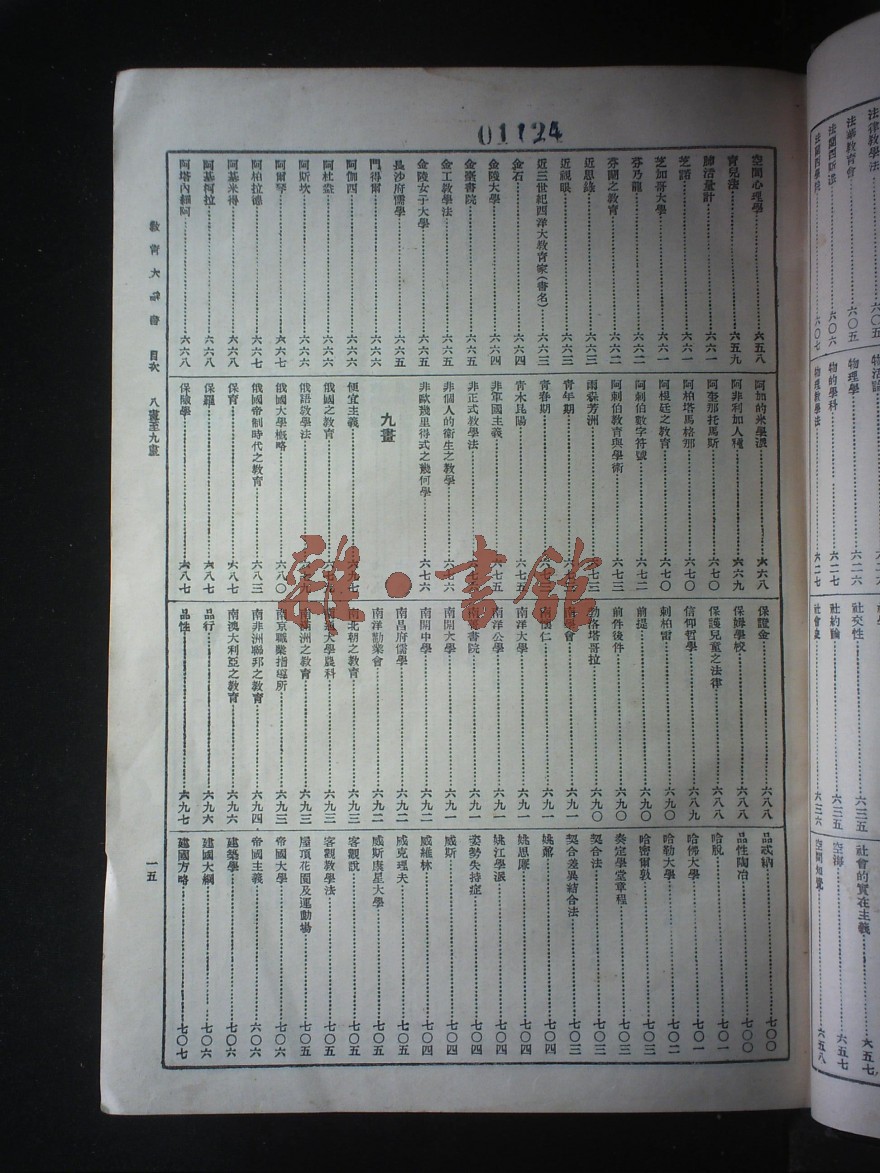 01124
空間心理學 六五八
育兒法 六五九
肺活量計 六六一
芝諾 六六一
芝加哥大學 六六一
芬乃龍 六六二
芬蘭之教育 六六二
近思錄 六六三
近視眼 六六三
近三世紀西洋大教育家(書名) 六六三
金石 六六四
金陵大學 六六四
金臺書院 六六五
金工教學法 六六五
金陵女子大學 六六五
長沙府儒學 六六五
門得爾 六六六
阿伽西 六六六
阿杜威 六六六
阿斯坎 六六六
阿爾琴 六六七
阿柏拉德 六六七
阿基米得 六六八
阿基柯拉 六六八
阿塔內細阿 六六八
阿加的米學派 六六八
阿非利加人種 六六九
阿奎那托馬斯 六七〇
阿柏塔馬格那 六七〇
阿根廷之教育 六七〇
阿刺伯數字符號 六七二
阿刺伯教育與學術 六七三
雨森芳洲 六七三
青年期
青春期
青木昆陽 六七五
非軍國主義 六七五
非正式教學法
非個人的衞生之教學 六七六
非歐幾里得式之幾何學 六七六
九畫
便宜主義 六七七
俄國之教育
俄語教學法
俄國大學概略 六八〇
俄國帝制時代之教育 六八三
保育 六八七
保羅 六八七
保險學 六八七
保證金 六八八
保姆學校 六八八
保護兒童之法律 六八九
信仰哲學 六九〇
刺柏雷 六九〇
前提 六九〇
前件後件 六九〇
勃洛塔哥拉 六九〇
南學會 六九一
南懷仁 六九一
南洋大學 六九一
南洋公學 六九一
南菁書院 六九一
南開大學 六九一
南開中學 六九二
南昌府儒學 六九二
南洋勸業會 六九二
南北朝之教育 六九三
南通大學農科 六九三
南滿洲之教育 六九三
南京職業指導所 六九三
南非洲聯邦之教育 六九四
南澳大利亞之教育 六九六
品行 六九六
品性 六九七
品法納 七〇〇
品性陶冶 七〇〇
哈脫 七〇一
哈佛大學 七〇一
哈勒大學 七〇二
哈密爾敦 七〇二
奏定學堂章程 七〇二
契合法 七〇三
契合差異結合法 七〇三
姚鼐 七〇四
姚思廉 七〇四
姚江學派 七〇四
姿勢失持症 七〇四
威斯 七〇四
威維林 七〇四
威克理夫 七〇五
威斯康星大學 七〇五
客觀說 七〇五
客觀教學法 七〇五
屋頂花園及運動場 七〇五
帝國大學 七〇六
帝國主義 六〇六
建築學 七〇六
建國大綱 七〇六
建國方略 七〇七
教育大辭書 目次 八畫至九畫
一五
雜·書館
法律教學法 六〇五
法華教育會 六〇五
法蘭西斯派 六〇六
法蘭西學院 六〇七
物理學 六二六
物的學科 六二七
物理教學法 六二七
社交性 六三五
社約論 六三五
社會 六三六
社會的實在主義 六五七
空海 六五七
空間知覺 六五八